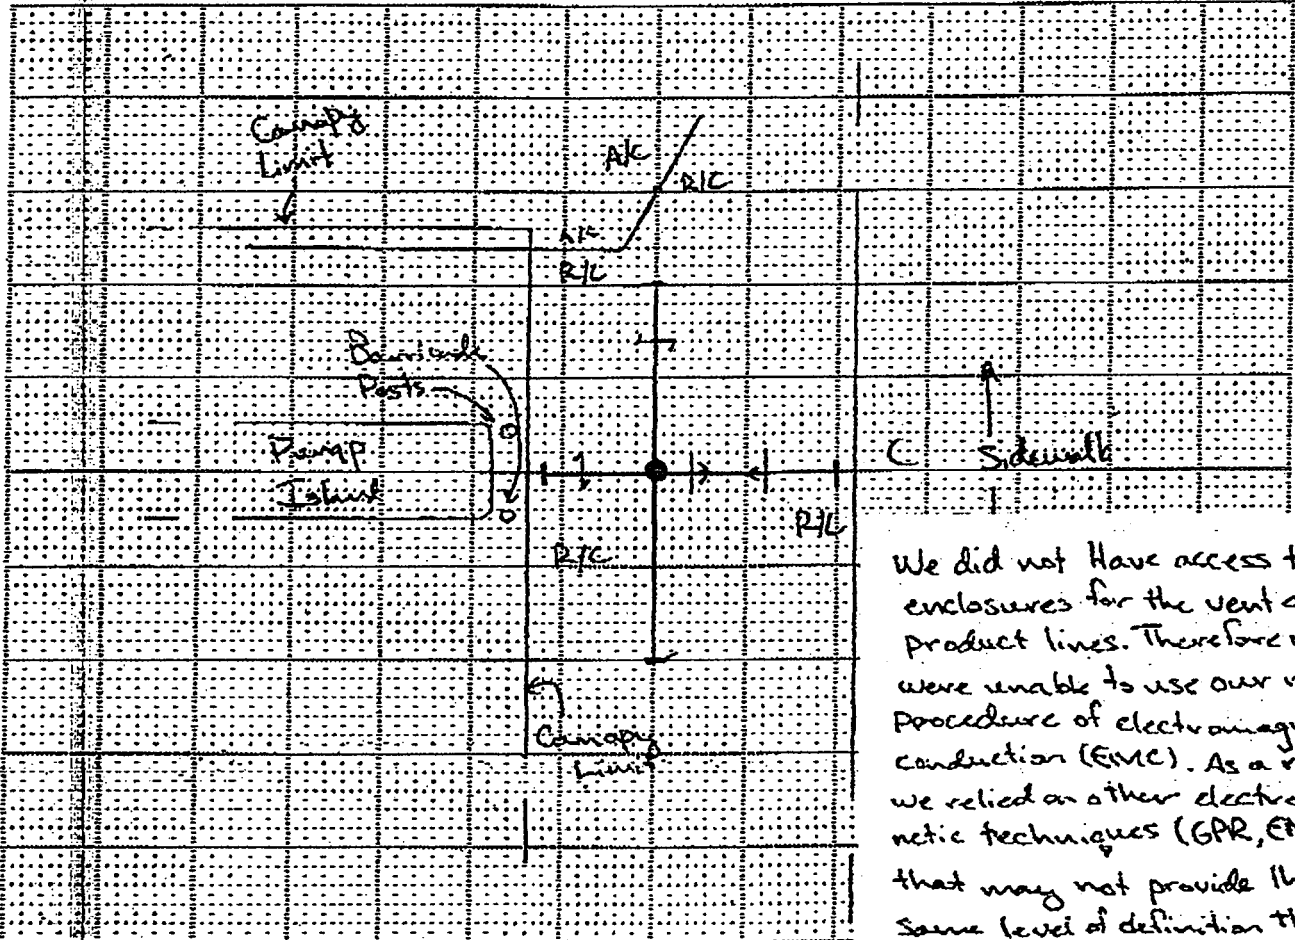 Canopy
Limit
A/C
R/C
A/C
R/C
Barricade
Posts
Pump
Island
C
Sidewalk
R/C
R/C
Canopy
Limit
We did not Have access t
enclosures for the vent
product lines. Therefore
were unable to use our
procedure of electromag
conduction (EMC). As a r
we relied on other electro
netic techniques (GPR, EM
that may not provide th
same level of definition th